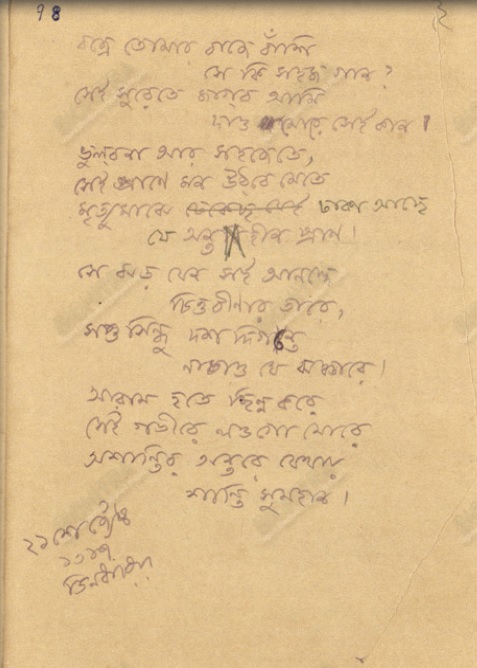 ৭8
বজ্রে তোমার বাজে বাঁশি
সে কি সহজ গান?
সেই সুরেতে জাগব আমি
দাও মোরে সেই কান।
ভুলব না আর সহজেতে,
সেই প্রাণে মন উঠবে মেতে
মৃত্যুমাঝে ঢাকা আছে
যে অন্তহীন প্রাণ।
সে ঝড় যেন সই আনন্দে
চিত্তবীণার তারে,
সপ্ত সিন্ধু দশ দিগন্ত
নাচাও যে ঝঙ্কারে।
আরাম হতে ছিন্ন করে
সেই গভীরে লও গো মোরে
অশান্তির অন্তরে যেথায়
শান্তি সুমহান।
২১শে জ্যৈষ্ঠ
১৩১৭
তিনধরিয়া